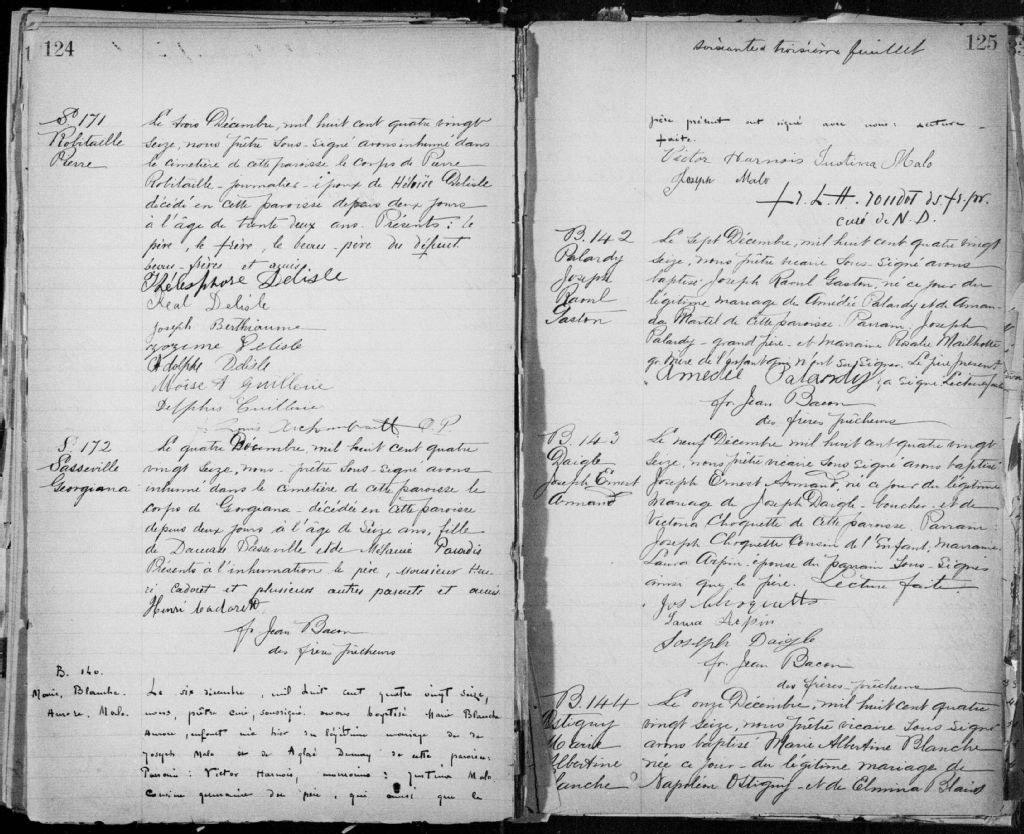 124
S. 171
Robitaille
Pierre
Le trois Décembre, mil huit cent quatre vingt
Seize, nous prêtre sous-signé avons inhumé dans
le cimetière de cette paroisse le corps de Pierre
Robitaille - journalier - époux de Héloïse Delisle
décédé en cette paroisse depuis deux jours
à l'âge de trente deux ans. Présents : le
père, le frère, le beau-père du défunt
beaux-frères et amis.
Thélesphore Delisle
Réal Delisle
Joseph Berthiaume
Zozime Delisle
Adolphe Delisle
Moïse A Guillerie
Delphis Guillerie
Archambault O.P.
S. 172
Passeville
Georgiana
Le quatre Décembre, mil huit cent quatre
vingt Seize, nous - prêtre sous-signé avons
inhumé dans le cimetière de cette paroisse le
corps de Georgiana - décédée en cette paroisse
depuis deux jours à l'âge de Seize ans, fille
de Damase Passeville et de Mélanie Paradis
Présents à l'inhumation le père, Monsieur Hen-
ri Cadoret et plusieurs autres parents et amis
Henri Cadorett
fr. Jean Bacon
des frères prêcheurs
B. 140.
Marie, Blanche.
Aurore. Malo.
Le six décembre, mil huit cent quatre vingt seize,
nous, prêtre curé, soussigné avons baptisé Marie Blanche
Aurore enfant née hier du légitime mariage de
Joseph Malo et de Aglaé de cette paroisse.
Parrain : Victor Harnois, marraine : Justina Malo
Cousine germaine du père, qui ainsi que le
soixante troisième feuillet
125
père présent ont signé avec nous. Lecture
faite.
Victor Harnois Justina Malo
Joseph Malo
fr. L. H. ds. fr. pr.
curé de N. D.
B. 142
Palardy
Joseph
Raoul
Gaston
Le Sept Décembre, mil huit cent quatre vingt
Seize, nous prêtre vicaire sous-signé avons
baptisé Joseph Raoul Gaston, né ce jour du
légitime mariage de Amédée Palardy et de Aman
da Martel de cette paroisse. Parrain, Joseph
Palardy - grand père - et marraine Rosalie Mailhotte
gr. mère de l'enfant qui n'ont su signer. Le père présent
Amédée Palardy a signé Lecture faite
fr. Jean Bacon
des frères prêcheurs
B. 143
Daigle
Joseph Ernest
Armand
Le neuf Décembre, mil huit cent quatre vingt
Seize, nous prêtre vicaire sous signé avons baptisé
Joseph Ernest Armand né ce jour du légitime
mariage de Joseph Daigle - boucher - et de
Victoria Choquette de cette paroisse. Parrain
Joseph Choquette Cousin de l'Enfant, Marraine
Laura Arpin - épouse du parrain Sous-Signés
ainsi que le père. Lecture faite.
Jos Choquette
Laura Arpin
Joseph Daigle
fr. Jean Bacon
des frères-prêcheurs
B. 144
Ostiguy
Marie
Albertine
Blanche
Le onze Décembre, mil huit cent quatre
vingt Seize, nous prêtre vicaire Sous Signé
avons baptisé Marie Albertine Blanche
née ce jour - du légitime mariage de
Napoléon Ostiguy - et de Elmina Blais